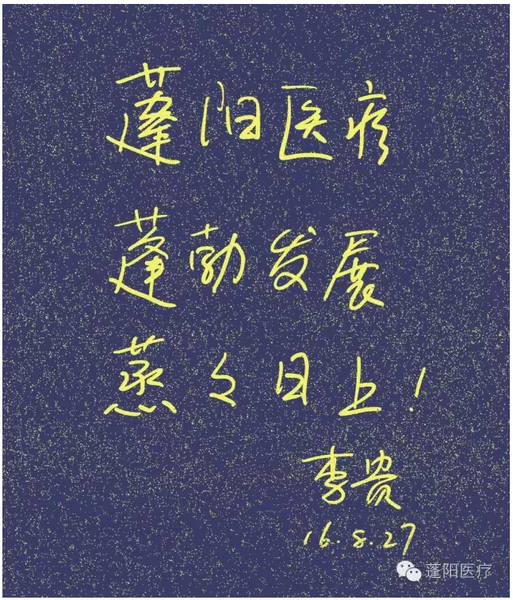 蓬阳医疗
蓬勃发展
蒸々日上！
李贵
16.8.27
蓬阳医疗